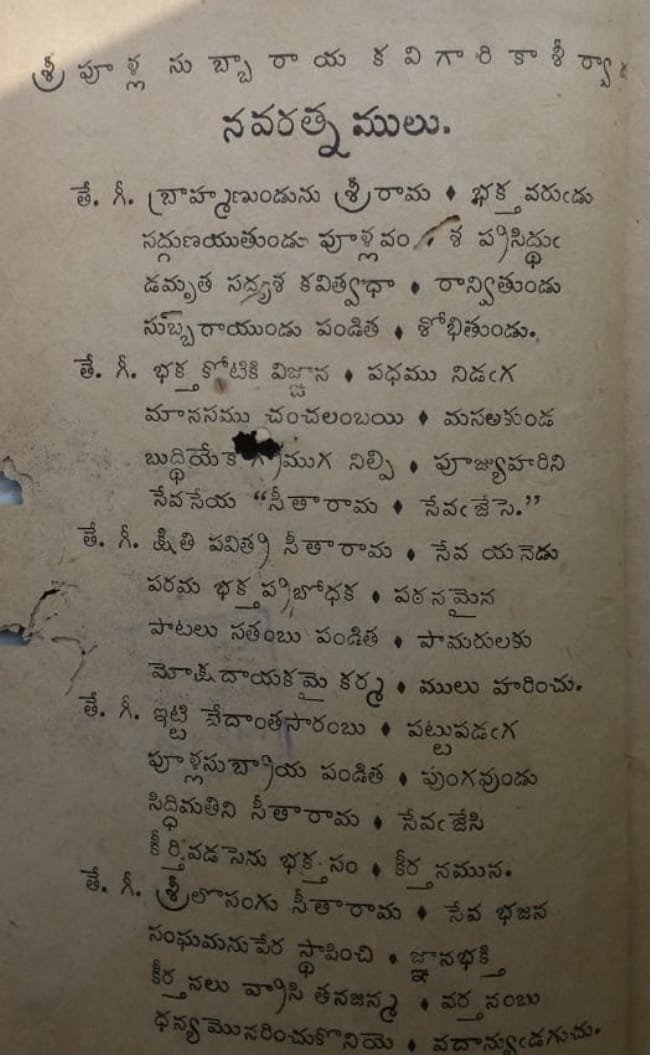 శ్రీ పూళ్ల సుబ్బారాయ కవిగారికాశీర్వా
నవరత్నములు.
తే. గీ. బ్రాహ్మణుండును శ్రీరామ ♦ భక్తవరుఁడు
సద్గుణయుతుండు పూళ్లవం ♦ శ ప్రసిద్ధుఁ
డమృత సదృశ కవిత్వధా ♦ రాన్వితుండు
సుబ్బరాయుండు పండిత ♦ శోభితుండు.
తే. గీ. భక్తకోటికి విజ్ఞాన ♦ పధము నిడఁగ
మానసము చంచలంబయి ♦ మసలకుండ
బుద్ధియేకాగ్రముగ నిల్పి ♦ పూజ్యుహరిని
సేవసేయ “సీతారామ ♦ సేవఁజేసె.”
తే. గీ. క్షితి పవిత్ర సీతారామ ♦ సేవ యనెడు
పరమ భక్తప్రబోధక ♦ పఠనమైన
పాటలు సతంబు పండిత ♦ పామరులకు
మోక్షదాయకమై కర్మ ♦ ములు హరించు.
తే. గీ. ఇట్టి వేదాంతసారంబు ♦ పట్టుపడఁగ
పూళ్లసుబ్రాయ పండిత ♦ పుంగవుండు
సిద్ధిమతిని సీతారామ ♦ సేవఁజేసి
కీర్తివడసెను భక్తసం ♦ కీర్తనమున.
తే. గీ. శ్రీలొసంగు సీతారామ ♦ సేవ భజన
సంఘమనుపేర స్థాపించి ♦ జ్ఞానభక్తి
కీర్తనలు వ్రాసి తనజన్మ ♦ వర్తనంబు
ధన్యమొనరించుకొనియె ♦ వదాన్యుఁడగుచు.